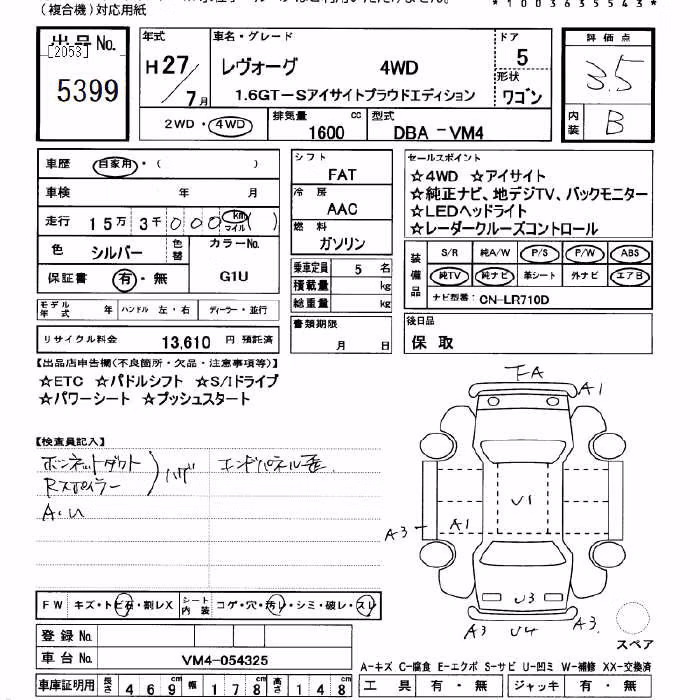 (複合機)対応用紙
*1003635543*
出品No.
[2053]
5399
年式
H27/7月
車名・グレード
レヴォーグ 4WD
1.6GT-Sアイサイトプラウドエディション
ドア
5
形状
ワゴン
2WD・4WD
排気量 1600 cc
型式 DBA-VM4
評価点
3.5
内装 B
車歴 自家用・( )
車検 年 月
走行 15万3千000 km マイル ( )
色 シルバー 色替
カラーNo. G1U
保証書 有・無
モデル年式 年
ハンドル 左・右
ディーラー・並行
リサイクル料金 13,610 円 預託済
シフト
FAT
冷房
AAC
燃料
ガソリン
乗車定員 5 名
積載量 kg
総重量 kg
書類期限
月 日
セールスポイント
☆4WD ☆アイサイト
☆純正ナビ、地デジTV、バックモニター
☆LEDヘッドライト
☆レーダークルーズコントロール
装備品
S/R 純A/W P/S P/W ABS
純TV 純ナビ 革シート 外ナビ エアB
ナビ型番: CN-LR710D
後日品
保 取
【出品店申告欄(不良箇所・欠品・注意事項等)】
☆ETC ☆パドルシフト ☆S/Iドライブ
☆パワーシート ☆プッシュスタート
【検査員記入】
ボンネットダクト
Rスポイラー
ハゲ
エンドパネル歪.
A・U
下A
A1
U1
A3
A1
U3
A3
U4
A3
スペア
FW キズ・トビ石・割レX
シート内装 コゲ・穴・汚レ・シミ・破レ・スレ
登録No.
車台No. VM4-054325
車庫証明用 長さ 469cm 幅 178cm 高さ 148cm
A-キズ C-腐食 E-エクボ S-サビ U-凹ミ W-補修 XX-交換済
工具 有・無 ジャッキ 有・無